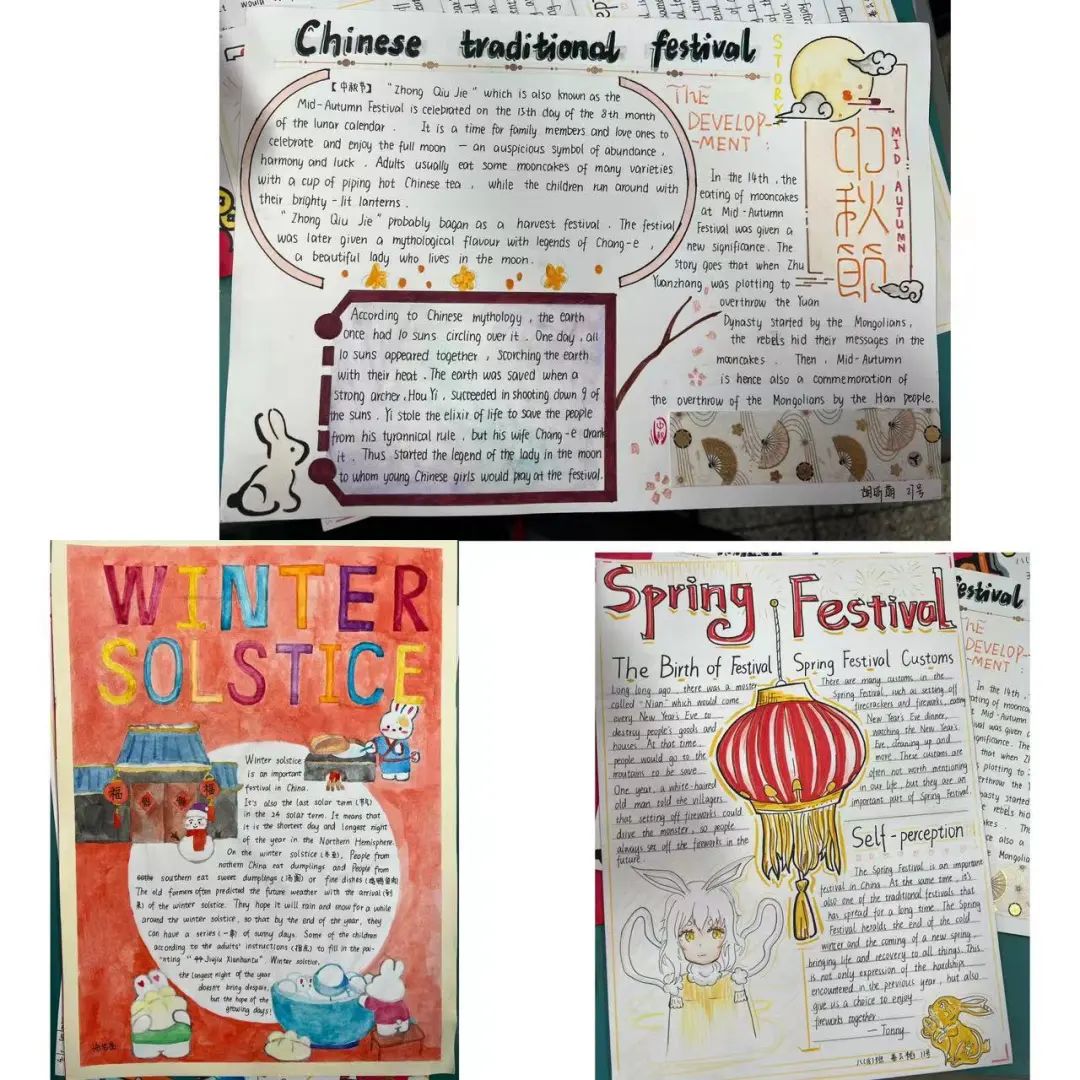 Chinese traditional festival
【中秋节】 "Zhong Qiu Jie" which is also known as the
Mid-Autumn Festival is celebrated on the 15th day of the 8th month
of the lunar calendar. It is a time for family members and love ones to
celebrate and enjoy the full moon — an auspicious symbol of abundance,
harmony and luck. Adults usually eat some mooncakes of many varieties
with a cup of piping hot Chinese tea, while the children run around with
their brighty-lit lanterns.
"Zhong Qiu Jie" probably bagan as a harvest festival. The festival
was later given a mythological flavour with legends of Chang-e,
a beautiful lady who lives in the moon.
According to Chinese mythology, the earth
once had 10 suns circling over it. One day, all
10 suns appeared together, scorching the earth
with their heat. The earth was saved when a
strong archer, Hou Yi, succeeded in shooting down 9 of
the suns. Yi stole the elixir of life to save the people
from his tyrannical rule, but his wife Chang-e drank
it. Thus started the legend of the lady in the moon
to whom young Chinese girls would pray at the festival.
STORY
THE
DEVELOP-
-MENT:
In the 14th, the
eating of mooncakes
at Mid-Autumn
Festival was given a
new significance. The
story goes that when Zhu
Yuanzhang was plotting to
overthrow the Yuan
Dynasty started by the Mongolians,
the rebels hid their messages in the
mooncakes. Then, Mid-Autumn
is hence also a commemoration of
the overthrow of the Mongolians by the Han people.
中秋節
MID-AUTUMN
27号
WINTER
SOLSTICE
福
福
Winter solstice
is an important
festival in China.
It's also the last solar term (节气)
in the 24 solar term. It means that
it is the shortest day and longest night
of the year in the Northern Hemisphere.
On the winter solstice (冬至), People from
nothern China eat dumplings and People from
southern eat sweet dumplings (汤圆) or fine dishes (鸡鸭鱼肉)
The old farmers often predicted the future weather with the arrival (到
来) of the winter solstice. They hope it will rain and snow for a while
around the winter solstice, so that by the end of the year, they
can have a series (一系) of sunny days. Some of the children
according to the adults' instructions (指点) to fill in the pai-
-nting "Jiujiu Xiaohantu" Winter solstice,
the longest night of the year
doesn't bring despair,
but the hope of the
growing days!
Spring Festival
The Birth of Festival
Long long ago, there was a moster
called "Nian" which would come
every New Year's Eve to
destroy people's goods and
houses. At that time,
people would go to the
moutains to be save.
One year, a white-haired
old man told the villagers
that setting off fireworks could
drive the monster, so people
always set off the fireworks in the
future.
Spring Festival Customs
There are many customs in the
Spring Festival, such as setting off
firecrackers and fireworks, eating
New Year's Eve dinner,
watching the New Year's
Eve, cleaning up and
more. These customs are
often not worth mentioning
in our life, but they are an
important part of Spring Festival.
Self-perception
The Spring Festival is an important
festival in China. At the same time, it's
also one of the traditional festivals that
has spread for a long time. The Spring
Festival heralds the end of the cold
winter and the coming of a new spring,
bringing life and recovery to all things. This
is not only expression of the hardships
encountered in the previous year, but also
give us a choice to enjoy
fireworks together.
— Tonny
11号
festival
THE
DEVELOP-
-MENT:
In the 14th,